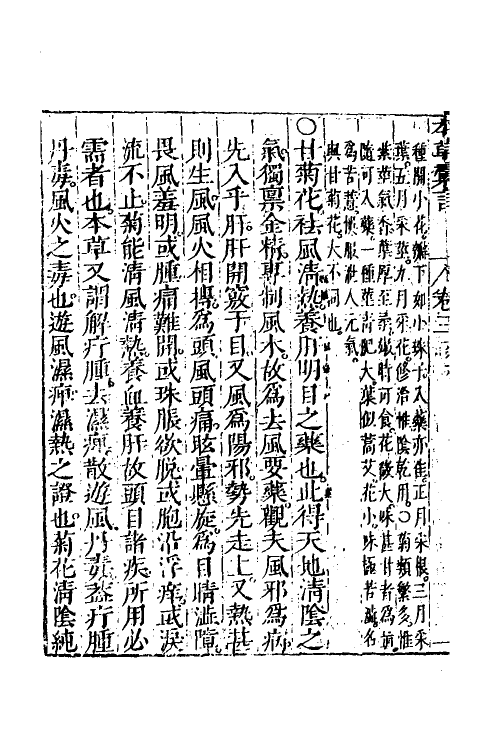 種開小花瓣下如小珠子入藥亦佳正月采根三月采
葉五月采莖九月采花修治惟陰乾用○菊類繁多惟
紫莖氣香葉厚至柔嫩時可食花微大味甚甘者為真
隨可入藥一種莖青肥大葉似蒿艾花小味極苦澁名
為苦薏惟服泄人元氣
與甘菊花大不同也
○甘菊花祛風清熱養肝明目之藥也此得天地清陰之
氣獨稟金精專制風木故為去風要藥觀夫風邪為病
先入乎肝肝開竅于目又風為陽邪勢先走上又熱甚
則生風風火相摶為頭風頭痛眩暈懸旋為目睛澁障
畏風羞明或腫痛難開或珠脹欲脫或胞沿浮痒或淚
流不止菊能清風清熱養血養肝故頭目諸疾所用必
需者也本草又謂解疔腫去濕痺散遊風丹毒盖疔腫
丹毒風火之毒也遊風濕痺濕熱之證也菊花清陰純
本草彙言
卷三